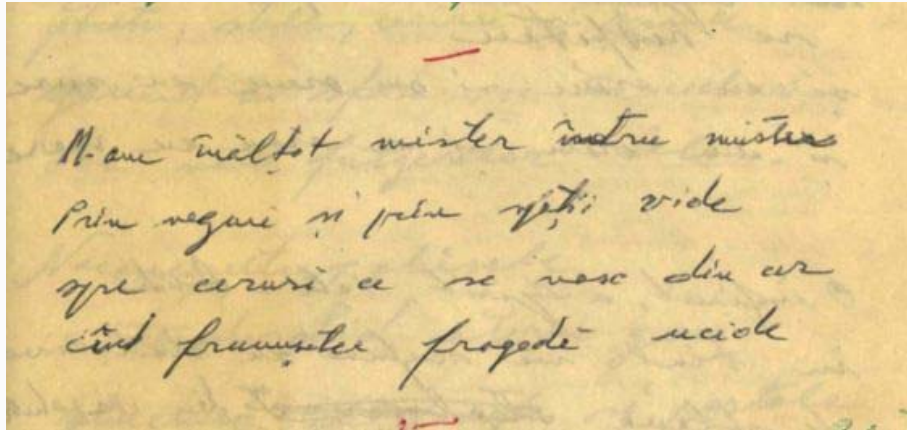 M-am înălțat mister întru mister
Prin neguri și prin spații vide
spre ceruri ce se nasc din cer
cînd frumusețea fragedă ucide